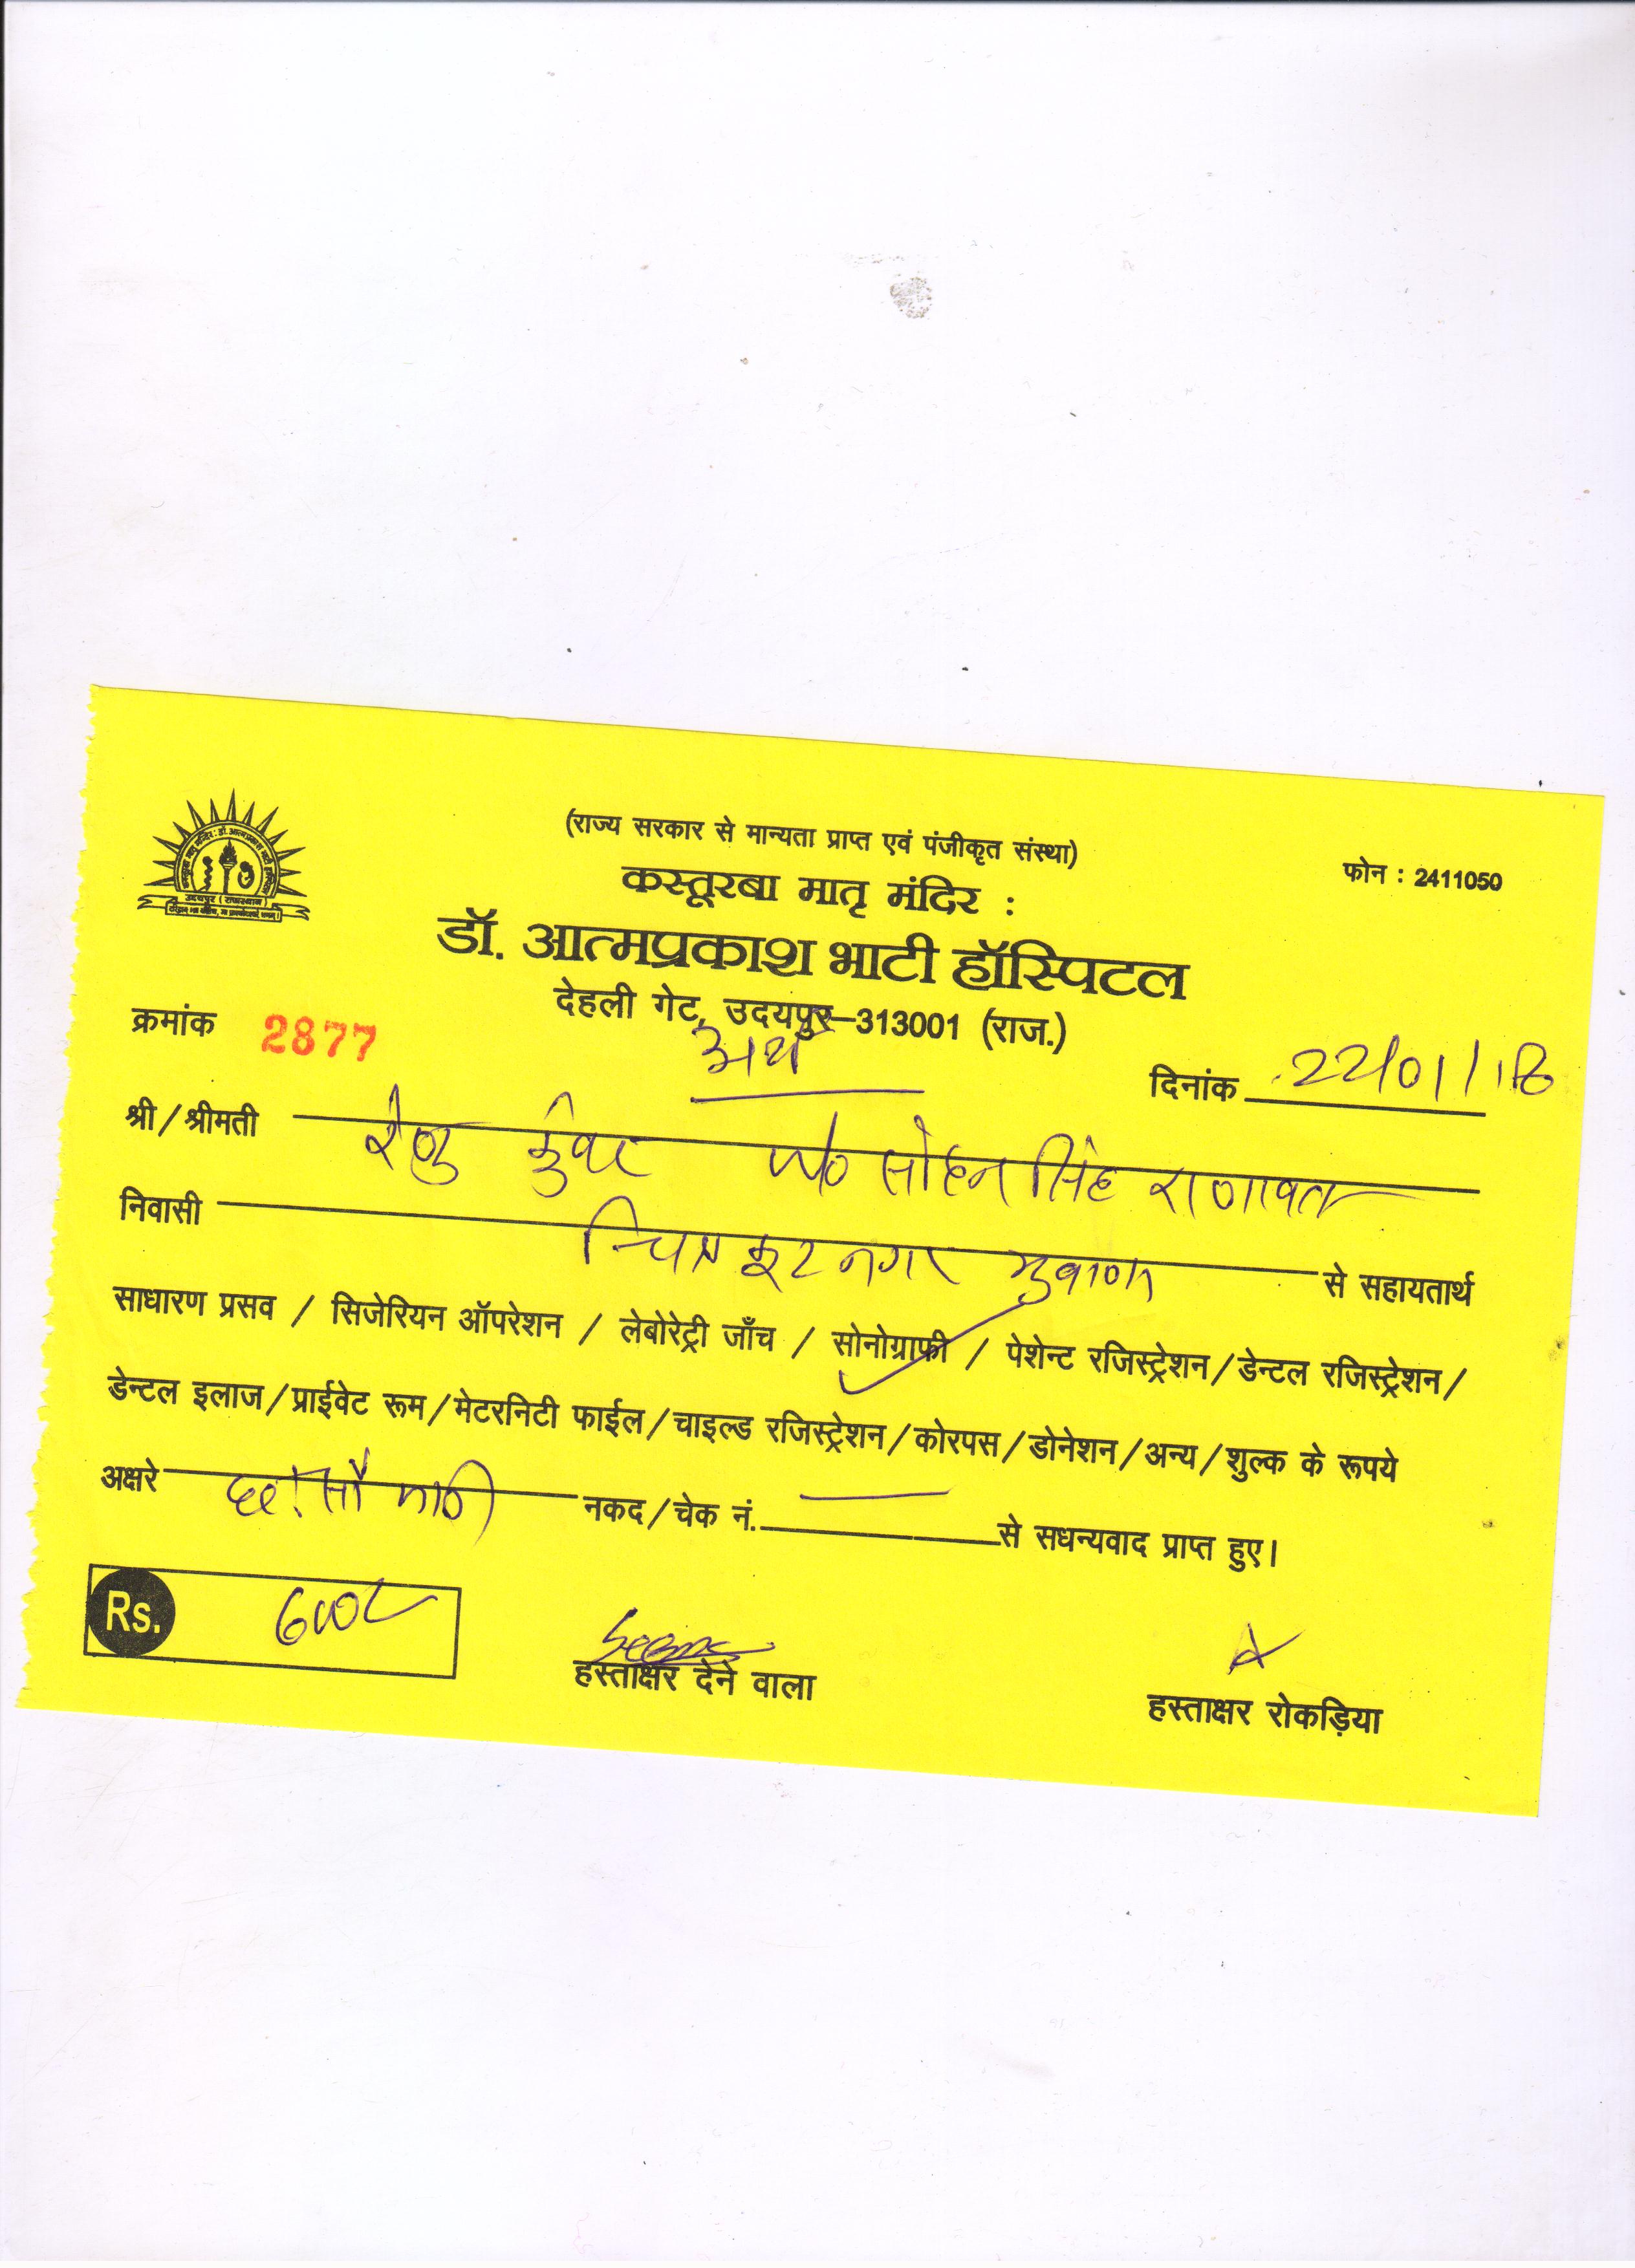 (राज्य सरकार से मान्यता प्राप्त एवं पंजीकृत संस्था)
फोन : 2411050
कस्तूरबा मातृ मंदिर :
डॉ. आत्मप्रकाश भाटी हॉस्पिटल
उदयपुर (राजस्थान)
देहली गेट, उदयपुर–313001 (राज.)
क्रमांक 2877
दिनांक 22/01/18
श्री/श्रीमती रेणु कुंवर w/o सोहन सिंह राणावत
निवासी चित्रकूट नगर भुवाणा से सहायतार्थ
साधारण प्रसव / सिजेरियन ऑपरेशन / लेबोरेट्री जाँच / सोनोग्राफी / पेशेन्ट रजिस्ट्रेशन/डेन्टल रजिस्ट्रेशन/
डेन्टल इलाज/प्राईवेट रूम/मेटरनिटी फाईल/चाइल्ड रजिस्ट्रेशन/कोरपस/डोनेशन/अन्य/शुल्क के रूपये
अक्षरे छः सौ मात्र नकद/चेक नं. से सधन्यवाद प्राप्त हुए।
Rs. 600/-
हस्ताक्षर देने वाला
हस्ताक्षर रोकड़िया